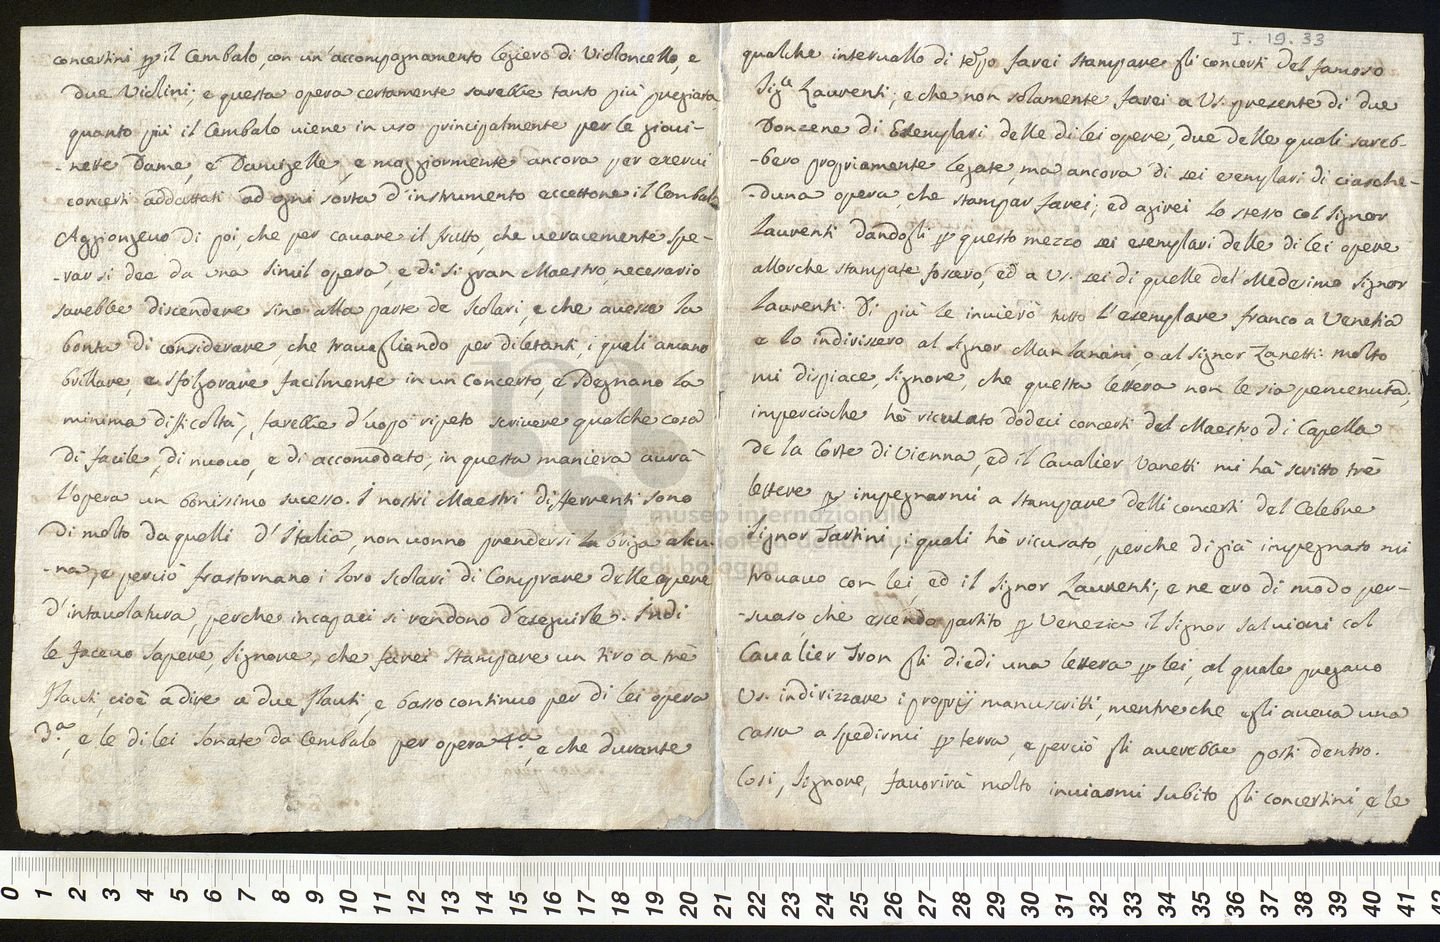 concertini p il Cembalo, con un'accompagnamento legiero di Violoncello, e
due Violini; e questa opera certamente sarebbe tanto più pregiata
quanto più il Cembalo viene in uso principalmente per le giovi-
-nette Dame, e Damigelle, e maggiormente ancora per esservi
concerti addattati ad ogni sorta d'instrumento eccettone il Cembal
Aggiongevo di poi che per cavare il frutto, che veracemente spe-
-rar si dee da una simil opera, e di si gran Maestro, necessario
sarebbe discendere sino alla parte de Scolari, e che avesse la
bontà di considerare, che travagliando per diletanti, i quali amano
brillare, e sfolgorare facilmente in un concerto, e sdegnano la
minima difficoltà, sarebbe d'uopo ripeto scrivere qualche cosa
di facile, di nuovo, e di accomodato; in questa maniera aurà
l'opera un bonissimo sucesso. I nostri Maestri differenti sono
di molto da quelli d'Italia, non vonno prendersi la briga alcu-
-na, e perciò frastornano i loro Scolari di Comprare delle opere
d'intavolatura, perche incapaci si rendono d'eseguirle. Indi
le facevo sapere Signore, che farei stampare un tiro a trè
flauti, cioè a dire a due flauti, e basso continuo per di lei opera
3.ª, e le di lei Sonate da Cembalo per opera 4.ª, e che durante
I. 19. 33
qualche intervallo di tepo farei stampare gli concerti del famoso
Sig.r Laurenti; e che non solamente farei a Vs. presente di due
Donzene di Esenplari delle di lei opere, due delle quali sareb-
-bero propriamente legate, ma ancora di sei esenplari di ciasche-
-duna opera che stampar farei; ed agirei lo stesso col Signor
Laurenti dandogli p questo mezzo sei esenplari delle di lei opere
allorche stampate fossero, ed a Vs. sei di quelle del Medesimo Signor
Laurenti. Di più le invierò tutto l'esenplare franco a Venetia
e lo indirissero al Signor o al Signor Zanetti. molto
mi dispiace, Signore, che questa lettera non le sia pervenuta,
impercioche hò ricusato dodeci concerti del Maestro di Capella
de la Corte di Vienna, ed il Cavalier Vanetti mi hà scritto trè
lettere p impegnarmi a stampare delli concerti del Celebre
Signor Tartini, i quali hò ricusato, perche di già impegnato mi
trovavo con lei, ed il Signor Laurenti; e ne ero di modo per-
-suaso che escendo partito p Venezia il Signor Salvioni col
Cavalier Tron gli diedi una lettera p lei, al quale pregavo
Vs. indirizzare i proprij manuscritti, mentreche egli aveva una
cassa a spedirmi p terra, e perciò gli averebbe posti dentro.
Cosi, Signore, favorirà molto inviarmi subito gli concertini, e le
museo internazionale
e biblioteca della musica
di bologna
0 1 2 3 4 5 6 7 8 9 10 11 12 13 14 15 16 17 18 19 20 21 22 23 24 25 26 27 28 29 30 31 32 33 34 35 36 37 38 39 40 41 42